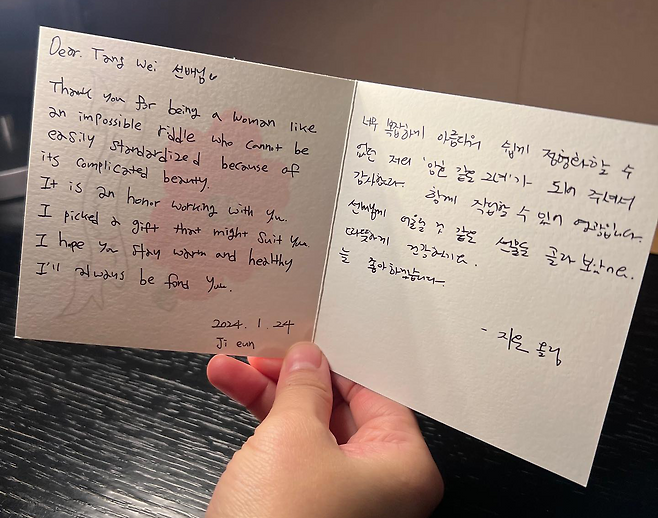 Dear. Tang Wei 선배님
Thank you for being a woman like
an impossible riddle who cannot be
easily standardized because of
its complicated beauty.
It is an honor working with you.
I picked a gift that might suit you.
I hope you stay warm and healthy
I'll always be fond you.
2024. 1. 24
Ji eun
너무 복잡하게 아름다워 쉽게 정형화할 수
없는 저의 '암호 같은 그녀'가 되어 주셔서
감사합니다. 함께 작업할 수 있어 영광입니다.
선배님께 어울릴 것 같은 선물을 골라 보았어요.
따뜻하게 건강하시길.
늘 좋아하겠습니다.
- 지은 올림